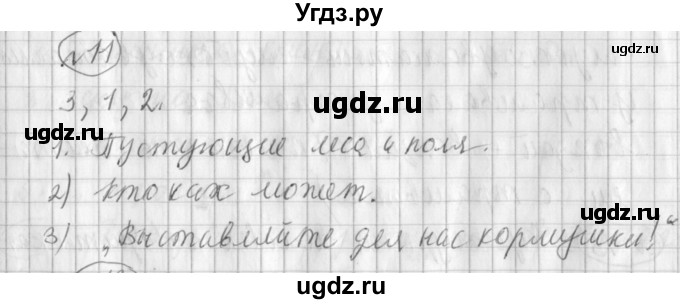 Угдз.ру
№11 ugdz.ru
ugdz.ru
3, 1, 2.
ugdz.ru ugdz.ru
1. Пустующие леса и поля.
ugdz.ru
2) Кто как может.
ugdz.ru
3) „Выставляйте для нас кормушки!“
ugdz.ru
ugdz.ru